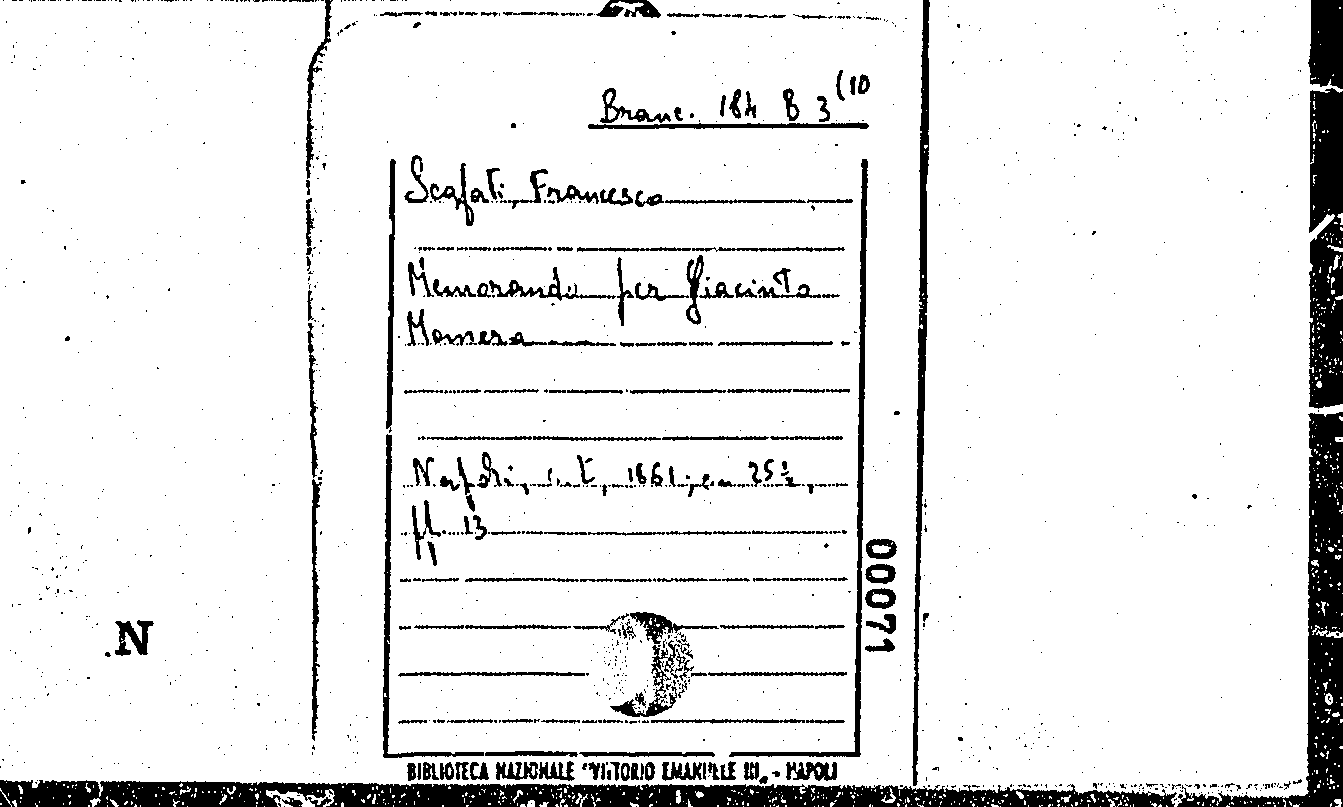 Branc. 184 B 3(10
Scafati, Francesco
Memorando per Giacinto
Napoli, 1861; cm 25½,
ff. 13
00071
N
BIBLIOTECA NAZIONALE "VITTORIO EMANUELE III" - NAPOLI